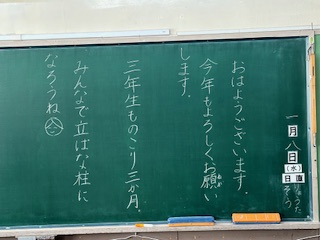 一月八日(水)
日直
おはようございます。
今年もよろしくお願い
します。
三年生ものこり三か月。
みんなで立ぱな柱に
なろうね